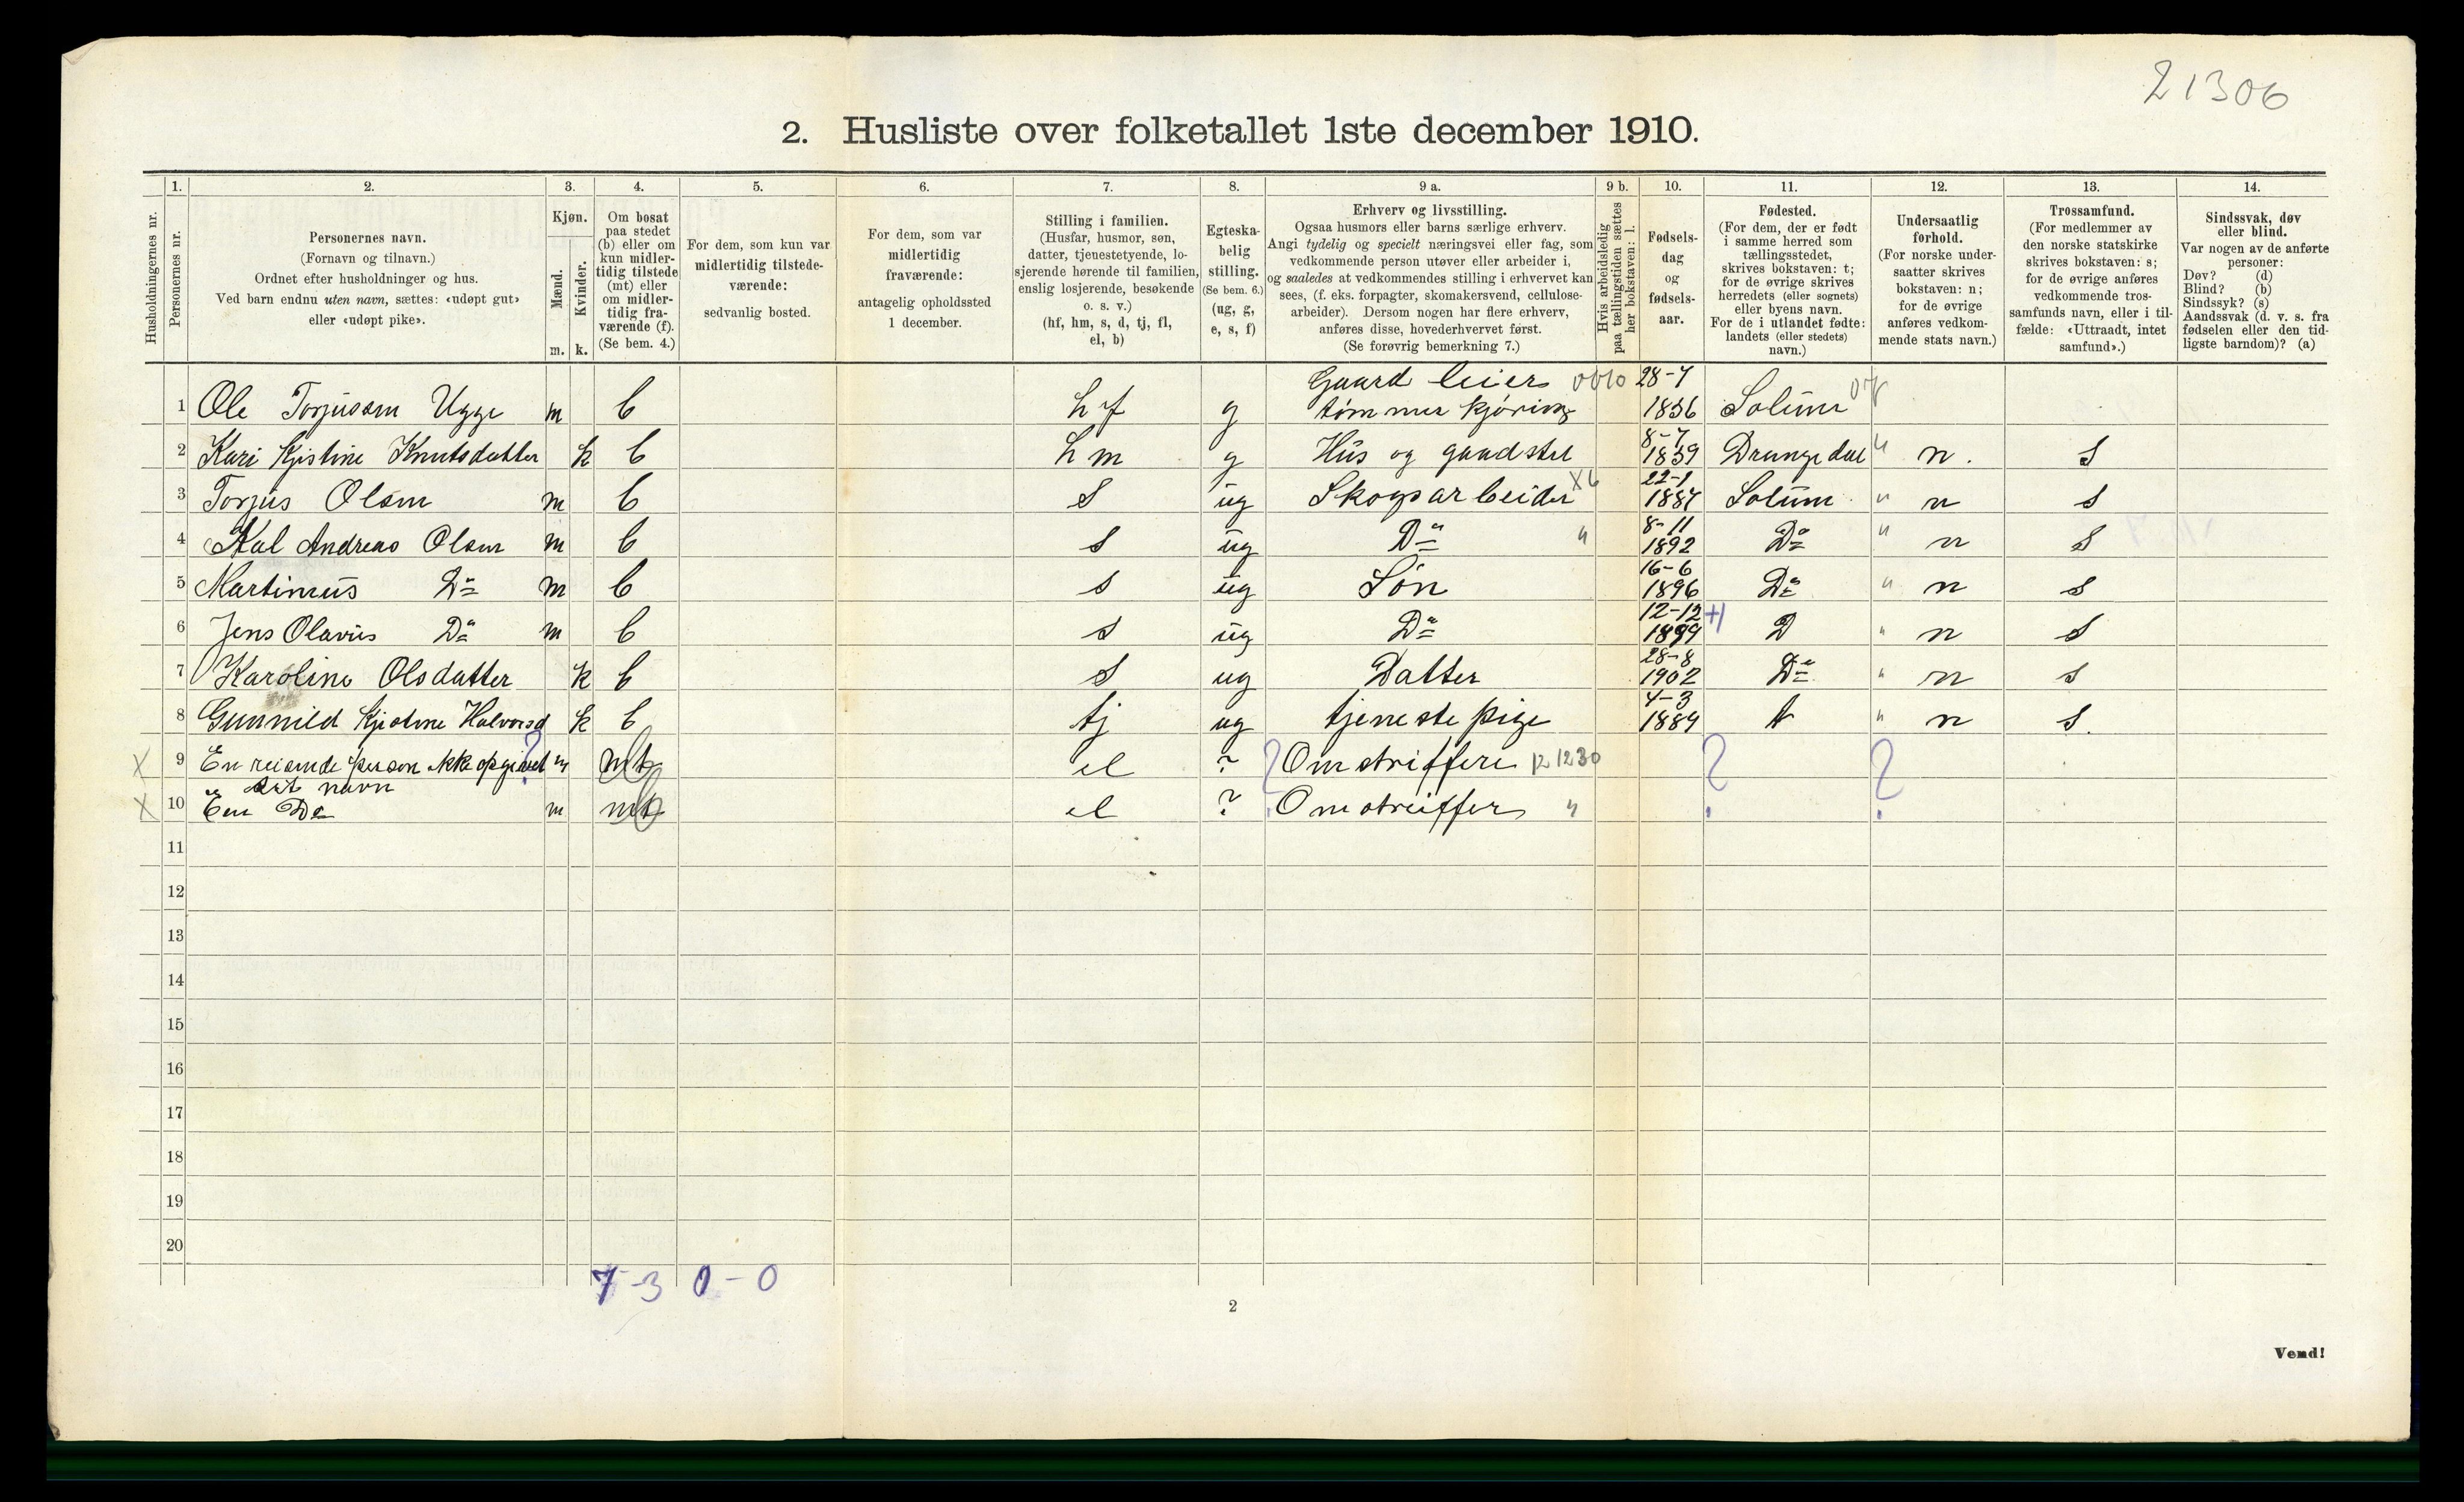 21306
2. Husliste over folketallet 1ste december 1910.
Husholdningernes nr.
1.
Personernes nr.
2.
Personernes navn.
(Fornavn og tilnavn.)
Ordnet efter husholdninger og hus.
Ved barn endnu uten navn, sættes: «udøpt gut»
eller «udøpt pike».
3.
Kjøn.
Mænd.
Kvinder.
m. k.
4.
Om bosat
paa stedet
(b) eller om
kun midler-
tidig tilstede
(mt) eller
om midler-
tidig fra-
værende (f).
(Se bem. 4.)
5.
For dem, som kun var
midlertidig tilstede-
værende:
sedvanlig bosted.
6.
For dem, som var
midlertidig
fraværende:
antagelig opholdssted
1 december.
7.
Stilling i familien.
(Husfar, husmor, søn,
datter, tjenestetyende, lo-
sjerende hørende til familien,
enslig losjerende, besøkende
o. s. v.)
(hf, hm, s, d, tj, fl,
el, b)
8.
Egteska-
belig
stilling.
(Se bem. 6.)
(ug, g,
e, s, f)
9 a.
Erhverv og livsstilling.
Ogsaa husmors eller barns særlige erhverv.
Angi tydelig og specielt næringsvei eller fag, som
vedkommende person utøver eller arbeider i,
og saaledes at vedkommendes stilling i erhvervet kan
sees, (f. eks. forpagter, skomakersvend, cellulose-
arbeider). Dersom nogen har flere erhverv,
anføres disse, hovederhvervet først.
(Se forøvrig bemerkning 7.)
9 b.
Hvis arbeidsledig
paa tællingstiden sættes
her bokstaven: l.
10.
Fødsels-
dag
og
fødsels-
aar.
11.
Fødested.
(For dem, der er født
i samme herred som
tællingsstedet,
skrives bokstaven: t;
for de øvrige skrives
herredets (eller sognets)
eller byens navn.
For de i utlandet fødte:
landets (eller stedets)
navn.)
12.
Undersaatlig
forhold.
(For norske under-
saatter skrives
bokstaven: n;
for de øvrige
anføres vedkom-
mende stats navn.)
13.
Trossamfund.
(For medlemmer av
den norske statskirke
skrives bokstaven: s;
for de øvrige anføres
vedkommende tros-
samfunds navn, eller i til-
fælde: «Uttraadt, intet
samfund».)
14.
Sindssvak, døv
eller blind.
Var nogen av de anførte
personer:
Døv? (d)
Blind? (b)
Sindssyk? (s)
Aandssvak (d. v. s. fra
fødselen eller den tid-
ligste barndom)? (a)
Gaard leier 28-7
1 Ole Torjusøn Ugge m b hf g tømmer kjøring 1856 Solum
8-7
2 Kari Kjistine Knutsdatter k b hm g Hus og gaadstel 1859 Drangedal " n. s
X6 22-1
3 Torjus Olsøn m b s ug Skogsarbeider 1887 Solum " n s
8-11
4 Kal Andreas Olsøn m b s ug Do " 1892 Do " n s
16-6
5 Martinius Do m b s ug Søn 1896 Do " n s
12-12 +1
6 Jens Olavus Do m b s ug Do 1899 D " n s
28-8
7 Karoline Olsdatter k b s ug Datter 1902 Do " n s
4-3
8 Gunnild Kjistine Halvorsd k b tj ug tjeneste pige 1889 t " n s.
X 9 En reisende person ikke opgivet ? m mt el ? ? Omstriffere 121230 ? ?
sit navn
X 10 En Do m mt el ? Omstreiffer "
11
12
13
14
15
16
17
18
19
20
7-3 0-0
2
Vend!